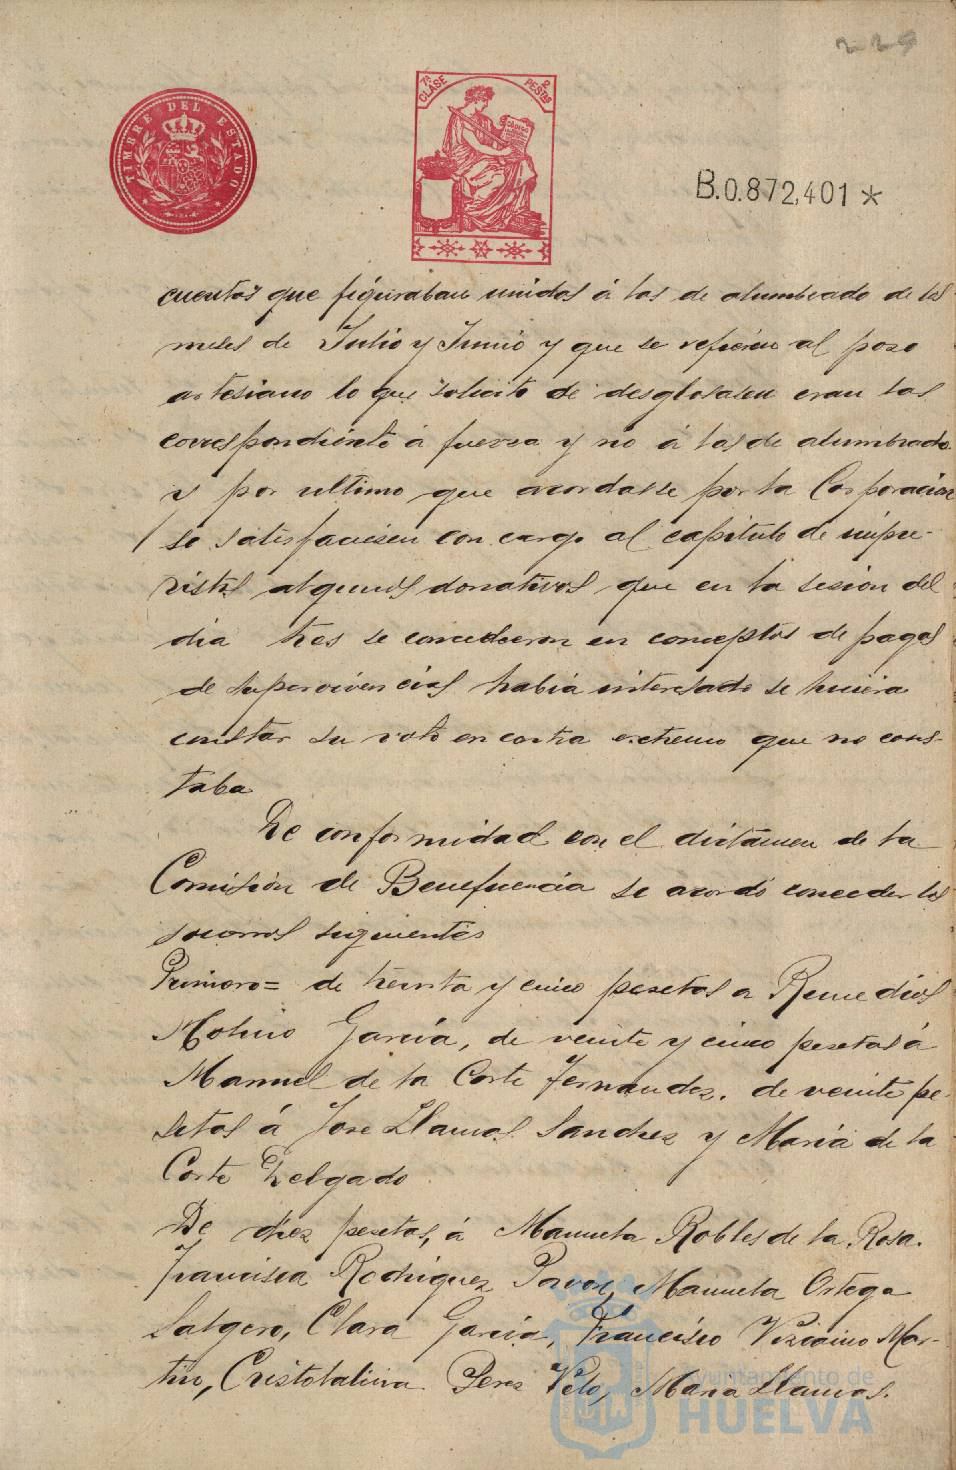 229
TIMBRE DEL ESTADO
7ª CLASE 2 PESTAS
B.0.872,401 *
cuentas que figuraban unidas á las de alumbrado de los
meses de Julio y Junio y que se referían al pozo
artesiano lo que solicitó se desglosasen eran las
correspondiente á fuerza y no á las de alumbrado
y por ultimo que acordarse por la Corporación
se satisfaciesen con cargo al capitulo de impre-
vistos algunos donativos que en la sesión del
dia tres se concedieron en conceptos de pagas
de supervivencias había interesado se hiciera
constar su voto en contra extremo que no cons-
taba
De conformidad con el dictámen de la
Comisión de Beneficencia se acordó conceder los
socorros siguientes
Primero= de treinta y cinco pesetas a Remedios
Molino García, de veinte y cinco pesetas á
Manuel de la Corte Fernandez. de veinte pe-
setas á Jose Llamas Sanchez y María de la
Corte Delgado
De diez pesetas, á Manuela Robles de la Rosa.
Francisca Rodriguez Pavon, Manuela Ortega
Salgero, Clara García, Francisco Vizcaino Mar-
tin, Cristobalina Perez Velo, Maria Llamas.
Ayuntamiento de
HUELVA